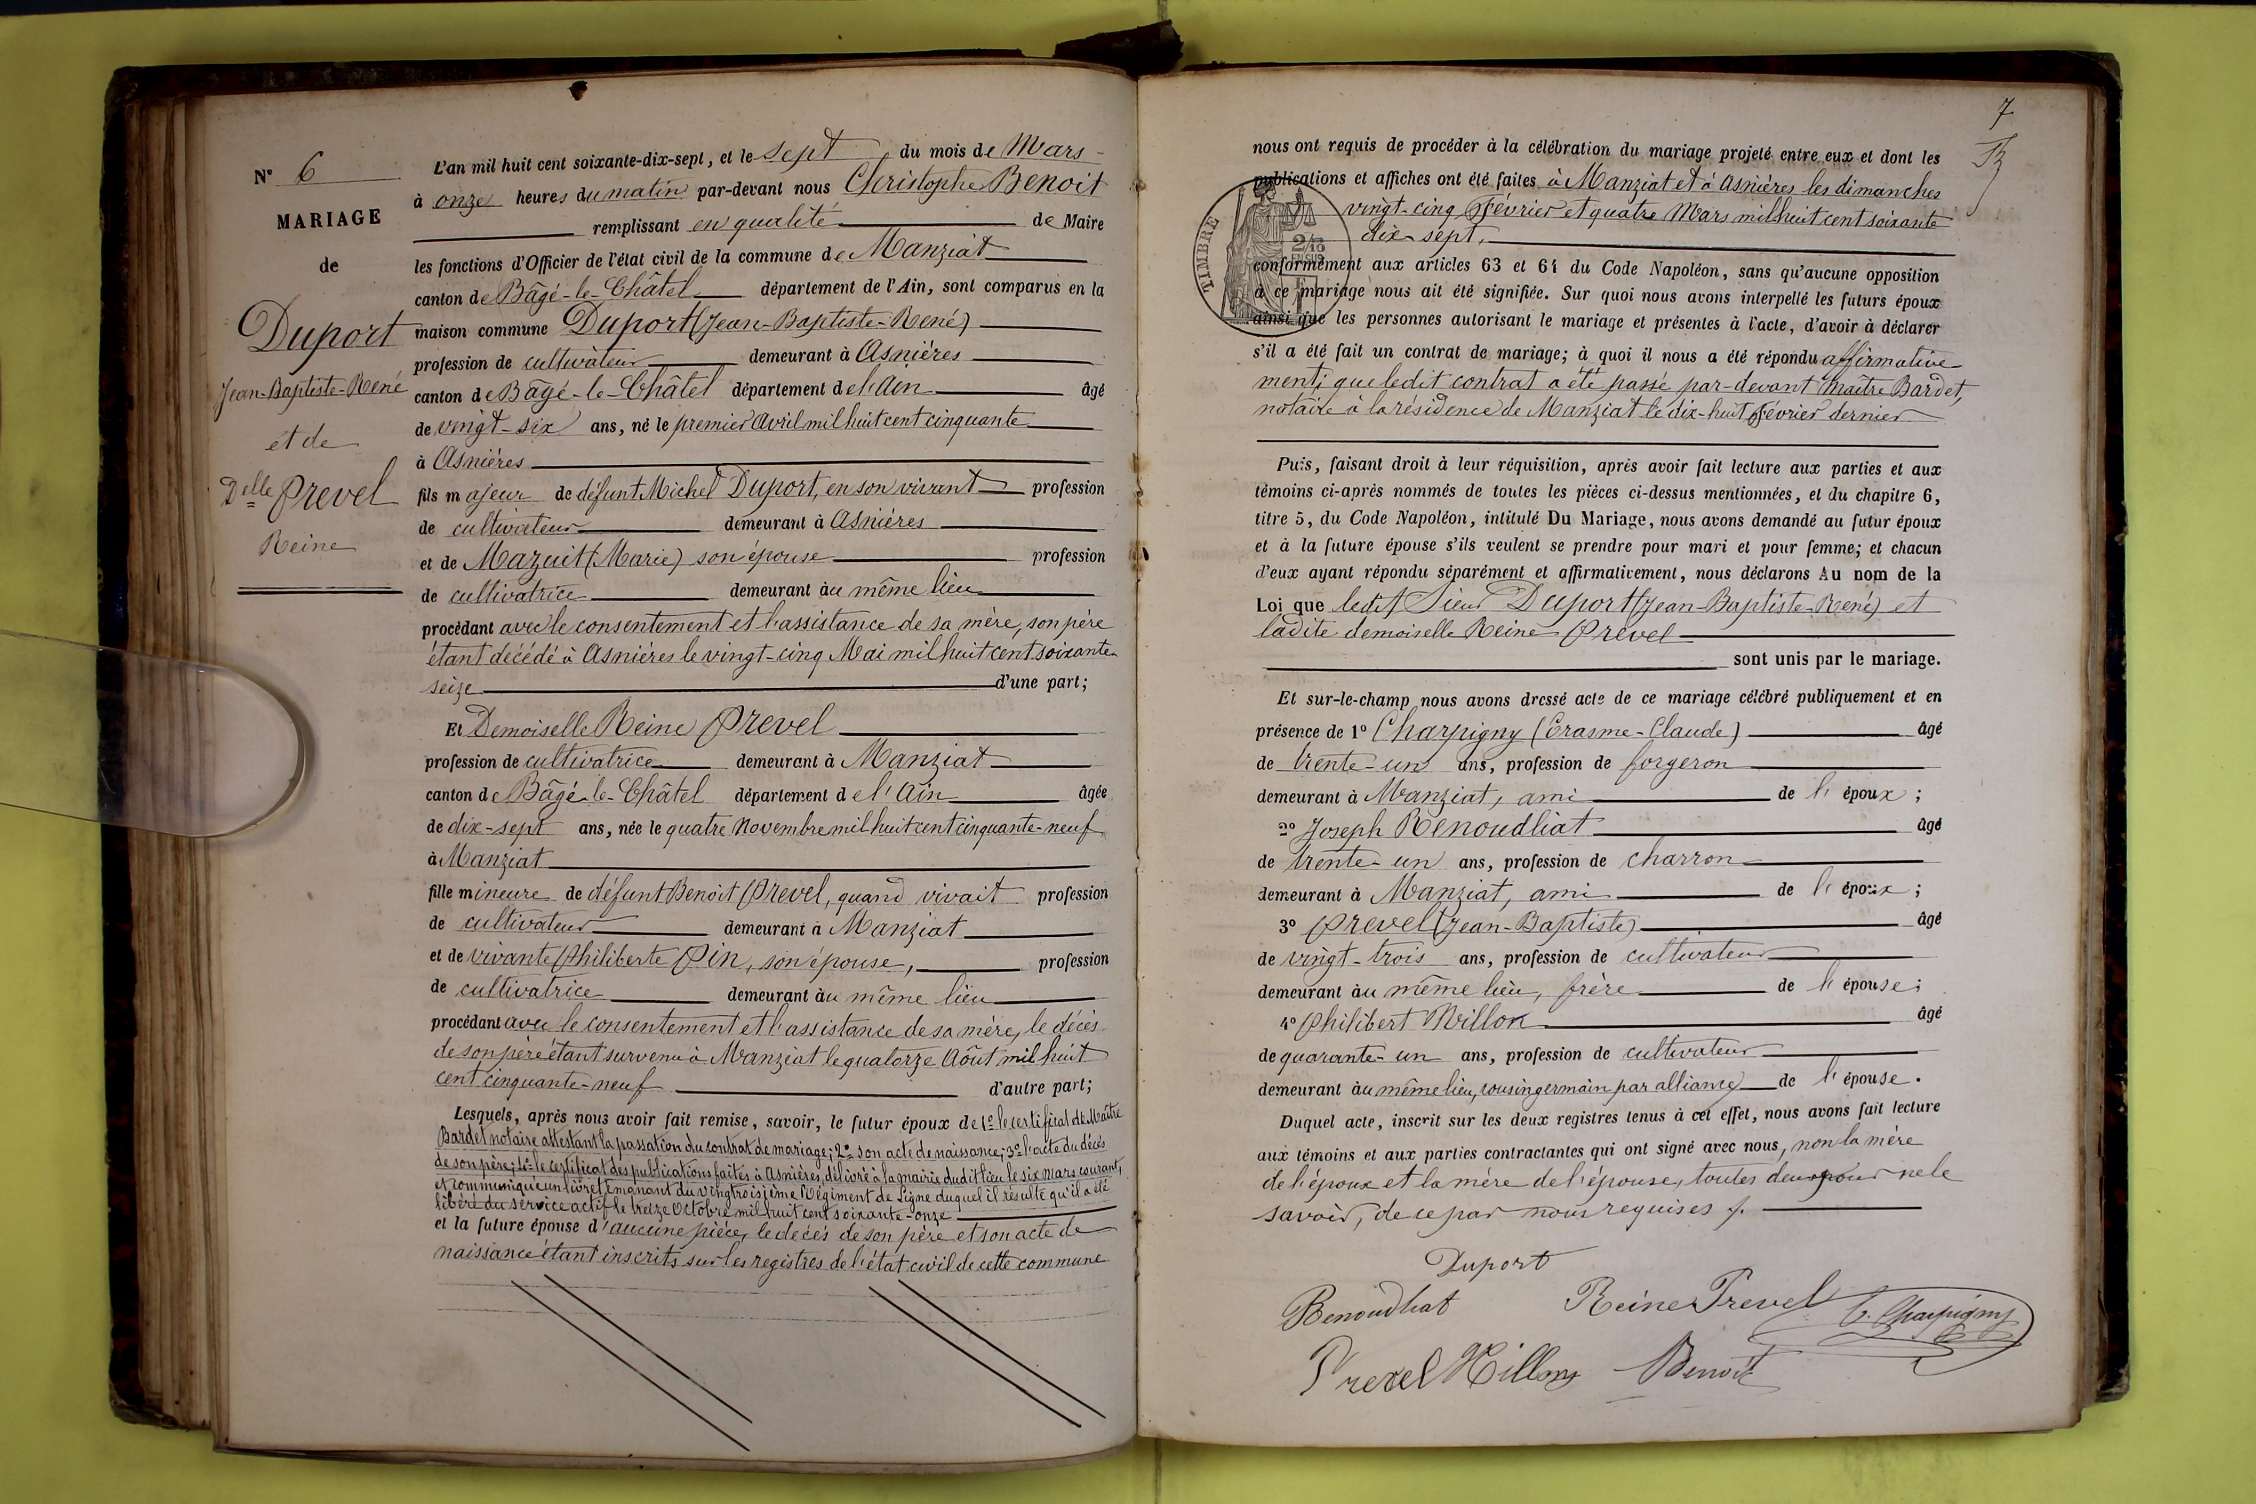 N° 6
MARIAGE
de
Duport
Jean-Baptiste-René
et de
Delle Prevel
Reine
L'an mil huit cent soixante-dix-sept, et le sept du mois de Mars
à onze heures du matin par-devant nous Christophe Benoit
remplissant en qualité de Maire
les fonctions d'Officier de l'état civil de la commune de Manziat
canton de Bâgé-le-Châtel département de l'Ain, sont comparus en la
maison commune Duport (Jean-Baptiste-René)
profession de cultivateur demeurant à Asnières
canton de Bâgé-le-Châtel département de l'Ain âgé
de vingt-six ans, né le premier Avril mil huit cent cinquante
à Asnières
fils majeur de défunt Michel Duport, en son vivant profession
de cultivateur demeurant à Asnières
et de Mazuit (Marie) son épouse profession
de cultivatrice demeurant au même lieu
procédant avec le consentement et l'assistance de sa mère, son père
étant décédé à Asnières le vingt-cinq Mai mil huit cent soixante-
seize d'une part;
Et Demoiselle Reine Prevel
profession de cultivatrice demeurant à Manziat
canton de Bâgé-le-Châtel département de l'Ain âgée
de dix-sept ans, née le quatre Novembre mil huit cent cinquante-neuf
à Manziat
fille mineure de défunt Benoit Prevel, quand vivait profession
de cultivateur demeurant à Manziat
et de vivante Philiberte Pin, son épouse, profession
de cultivatrice demeurant au même lieu
procédant avec le consentement et l'assistance de sa mère, le décès
de son père étant survenu à Manziat le quatorze Août mil huit
cent cinquante-neuf d'autre part;
Lesquels, après nous avoir fait remise, savoir, le futur époux de 1° le certificat de Maître
Bardet notaire attestant la passation du contrat de mariage; 2° son acte de naissance; 3° l'acte du décès
de son père; 4° le certificat des publications faites à Asnières, délivré à la mairie dudit lieu le six mars courant,
et communiqué un livret émanant du vingtroisième Régiment de Ligne duquel il résulte qu'il a été
libéré du service actif le treize Octobre mil huit cent soixante-onze
et la future épouse d'aucune pièce, le décès de son père et son acte de
naissance étant inscrits sur les registres de l'état civil de cette commune
7
nous ont requis de procéder à la célébration du mariage projeté entre eux et dont les
publications et affiches ont été faites à Manziat et à Asnières les dimanches
vingt-cinq Février et quatre Mars mil huit cent soixante
dix-sept,
TIMBRE
conformément aux articles 63 et 64 du Code Napoléon, sans qu'aucune opposition
à ce mariage nous ait été signifiée. Sur quoi nous avons interpellé les futurs époux
ainsi que les personnes autorisant le mariage et présentes à l'acte, d'avoir à déclarer
s'il a été fait un contrat de mariage; à quoi il nous a été répondu affirmative-
ment; que ledit contrat a été passé par-devant Maître Bardet,
notaire à la résidence de Manziat le dix-huit Février dernier
Puis, faisant droit à leur réquisition, après avoir fait lecture aux parties et aux
témoins ci-après nommés de toutes les pièces ci-dessus mentionnées, et du chapitre 6,
titre 5, du Code Napoléon, intitulé Du Mariage, nous avons demandé au futur époux
et à la future épouse s'ils veulent se prendre pour mari et pour femme; et chacun
d'eux ayant répondu séparément et affirmativement, nous déclarons Au nom de la
Loi que ledit Sieur Duport (Jean-Baptiste-René) et
ladite demoiselle Reine Prevel
sont unis par le mariage.
Et sur-le-champ nous avons dressé acte de ce mariage célébré publiquement et en
présence de 1° Charpigny (Erasme-Claude) âgé
de trente-un ans, profession de forgeron
demeurant à Manziat, ami de l'époux;
2° Joseph Renoudliat âgé
de trente-un ans, profession de charron
demeurant à Manziat, ami de l'époux;
3° Prevel (Jean-Baptiste) âgé
de vingt-trois ans, profession de cultivateur
demeurant au même lieu, frère de l'épouse;
4° Philibert Millon âgé
de quarante-un ans, profession de cultivateur
demeurant au même lieu, cousin germain par alliance de l'épouse.
Duquel acte, inscrit sur les deux registres tenus à cet effet, nous avons fait lecture
aux témoins et aux parties contractantes qui ont signé avec nous, non la mère
de l'époux et la mère de l'épouse, toutes deux pour ne le
savoir, de ce par nous requises
Duport
Renoudliat Reine Prevel C. Charpigny
Prevel Millon Benoit